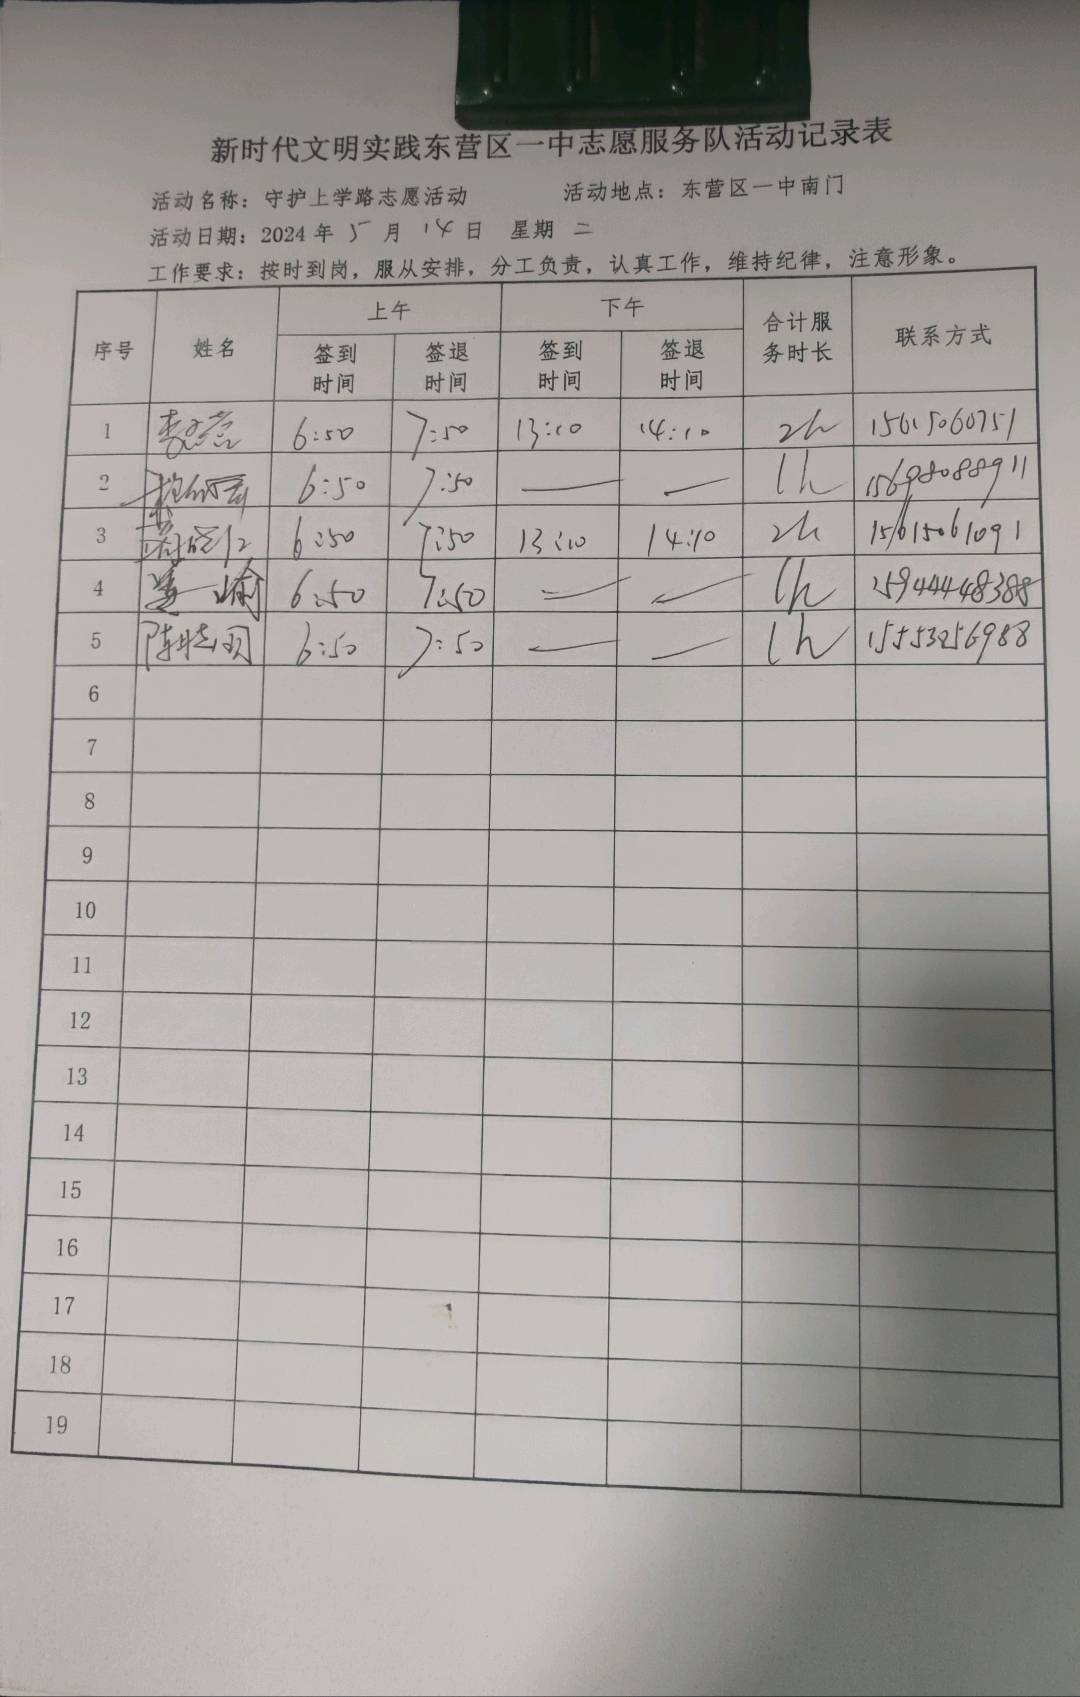 新时代文明实践东营区一中志愿服务队活动记录表
活动名称：守护上学路志愿活动 活动地点：东营区一中南门
活动日期：2024 年 5 月 14 日 星期 二
工作要求：按时到岗，服从安排，分工负责，认真工作，维持纪律，注意形象。
序号 姓名 上午 下午 合计服务时长 联系方式
签到时间 签退时间 签到时间 签退时间
1 6:50 7:50 13:10 14:10 2h 15615060751
2 6:50 7:50 — — 1h 15698088911
3 6:50 7:50 13:10 14:10 2h 15615061091
4 姜 瑜 6:50 7:50 — — 1h
5 陈 6:50 7:50 — — 1h 15553256988
6
7
8
9
10
11
12
13
14
15
16
17
18
19